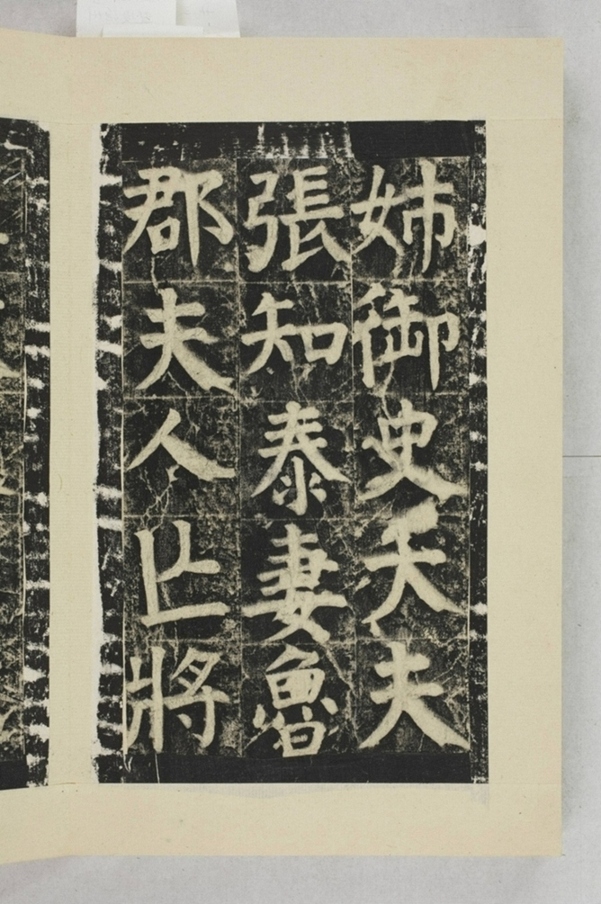 姊御史大夫
張知泰妻魯
郡夫人亡將